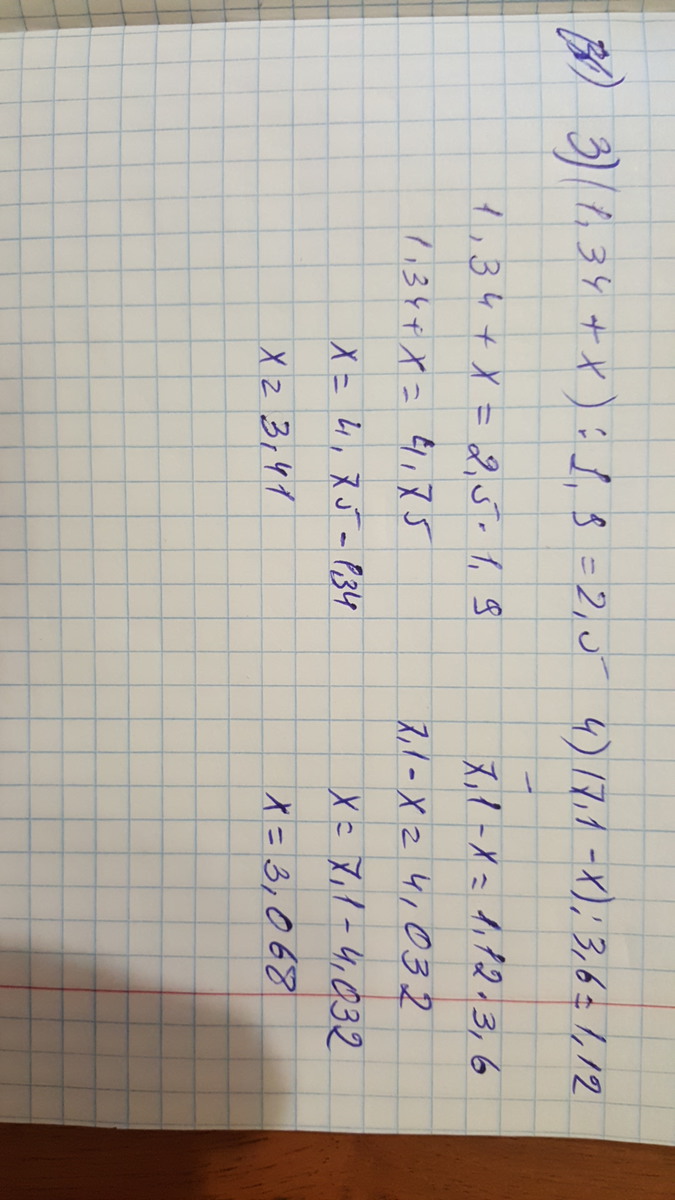 3) (1,34 + x) : 1,9 = 2,5
1,34 + x = 2,5 · 1,9
1,34 + x = 4,75
x = 4,75 - 1,34
x = 3,41
4) (7,1 - x) : 3,6 = 1,12
7,1 - x = 1,12 · 3,6
7,1 - x = 4,032
x = 7,1 - 4,032
x = 3,068